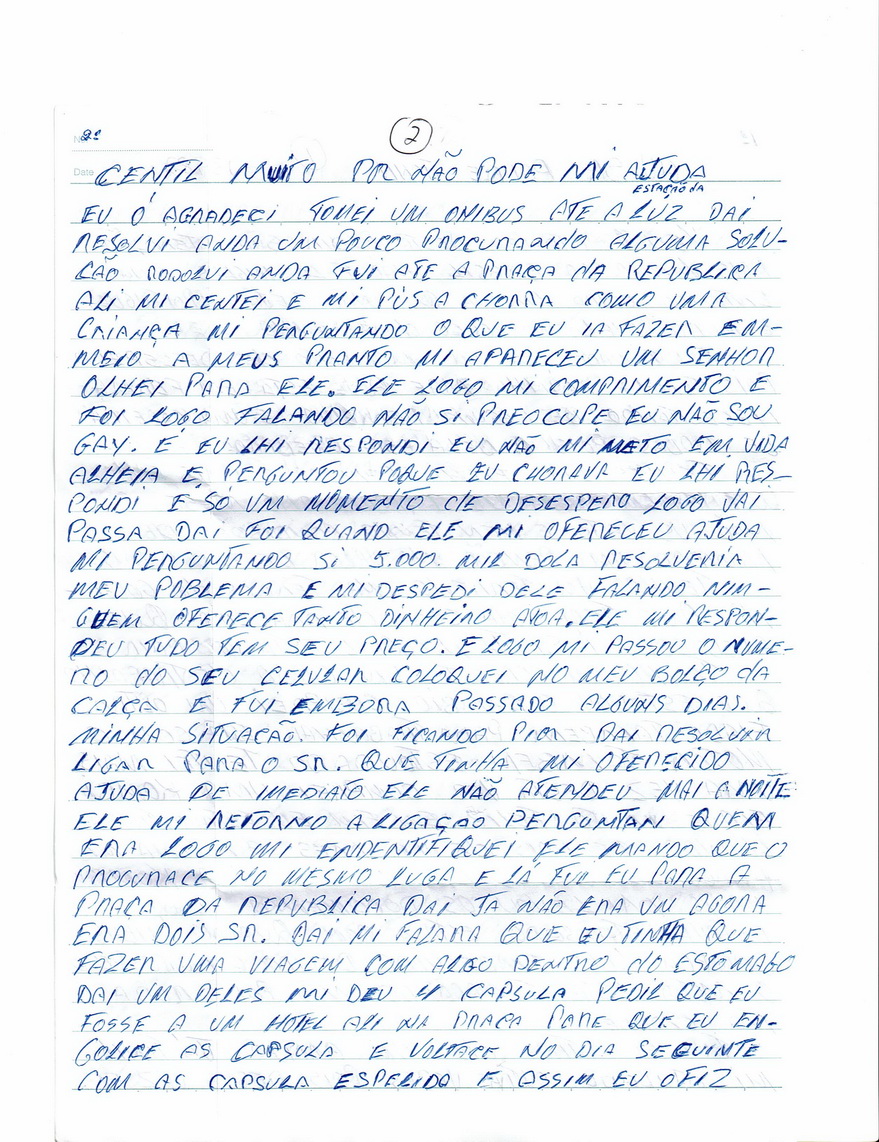 2º
2
Date
CENTIL MUITO POR NÃO PODE MI AJUDA
ESTAÇÃO DA
EU O AGRADECI TOMEI UM ONIBUS ATE A LUZ DAI
RESOLVI ANDA UM POUCO PROCURANDO ALGUMA SOLU-
CÃO RODOLVI ANDA FUI ATE A PRAÇA dA REPUBLICA
ALI MI CENTEI E MI PÚS A CHORRA COMO UMA
CRIANÇA MI PERGUNTANDO O QUE EU IA FAZER EM-
MEIO A MEUS PRANTO MI APARECEU UM SENHOR
OLHEI PARA ELE. ELE LOGO MI COMPRIMENTO E
FOI LOGO FALANDO NÃO SI PREOCUPE EU NÃO SOU
GAY. E EU LHI RESPONDI EU NÃO MI METO EM VIDA
ALHEIA E PERGUNTOU POQUE EU CHORAVA EU LHI RES-
PONDI E SÓ UM MOMENTO dE DESESPERO LOGO VAI
PASSA DAI FOI QUAND ELE MI OFERECEU AJUDA
MI PERGUNTANDO SI 5.000. MIL DOLA RESOLVERIA
MEU POBLEMA E MI DESPEDI DELE FALANDO NIM-
GUEM OFERECE TANTO DINHEIRO ATOA. ELE MI RESPON-
DEU TUDO TEM SEU PREÇO. E LOGO MI PASSOU O NUME-
RO dO SEU CELULAR COLOQUEI NO MEU BOLÇO dA
CALÇA E FUI EMBORA PASSADO ALGUNS DIAS.
MINHA SITUAÇÃO. FOI FICANDO PIOR DAI RESOLVIR
LIGAR PARA O SR. QUE TINHA MI OFERECIDO
AJUDA DE IMEDIATO ELE NÃO ATENDEU MAI A NOITE
ELE MI RETORNO A LIGAÇAO PERGUNTAR QUEM
ERA LOGO MI ENDENTIFIQUEI ELE MANDO QUE O
PROCURACE NO MESMO LUGA E LÁ FUI EU PARA A
PRAÇA DA REPUBLICA DAI JA NÃO ERA UM AGORA
ERA DOIS SR. DAI MI FALARA QUE EU TINHA QUE
FAZER UMA VIAGEM COM ALGO DENTRO dO ESTOMAGO
DAI UM DELES MI DEU 4 CAPSULA PEDIL QUE EU
FOSSE A UM HOTEL ALI NA PRAÇA PARE QUE EU EN-
GOLICE AS CAPSULA E VOLTACE NO DIA SEGUINTE
COM AS CAPSULA ESPELIDA E ASSIM EU O FIZ